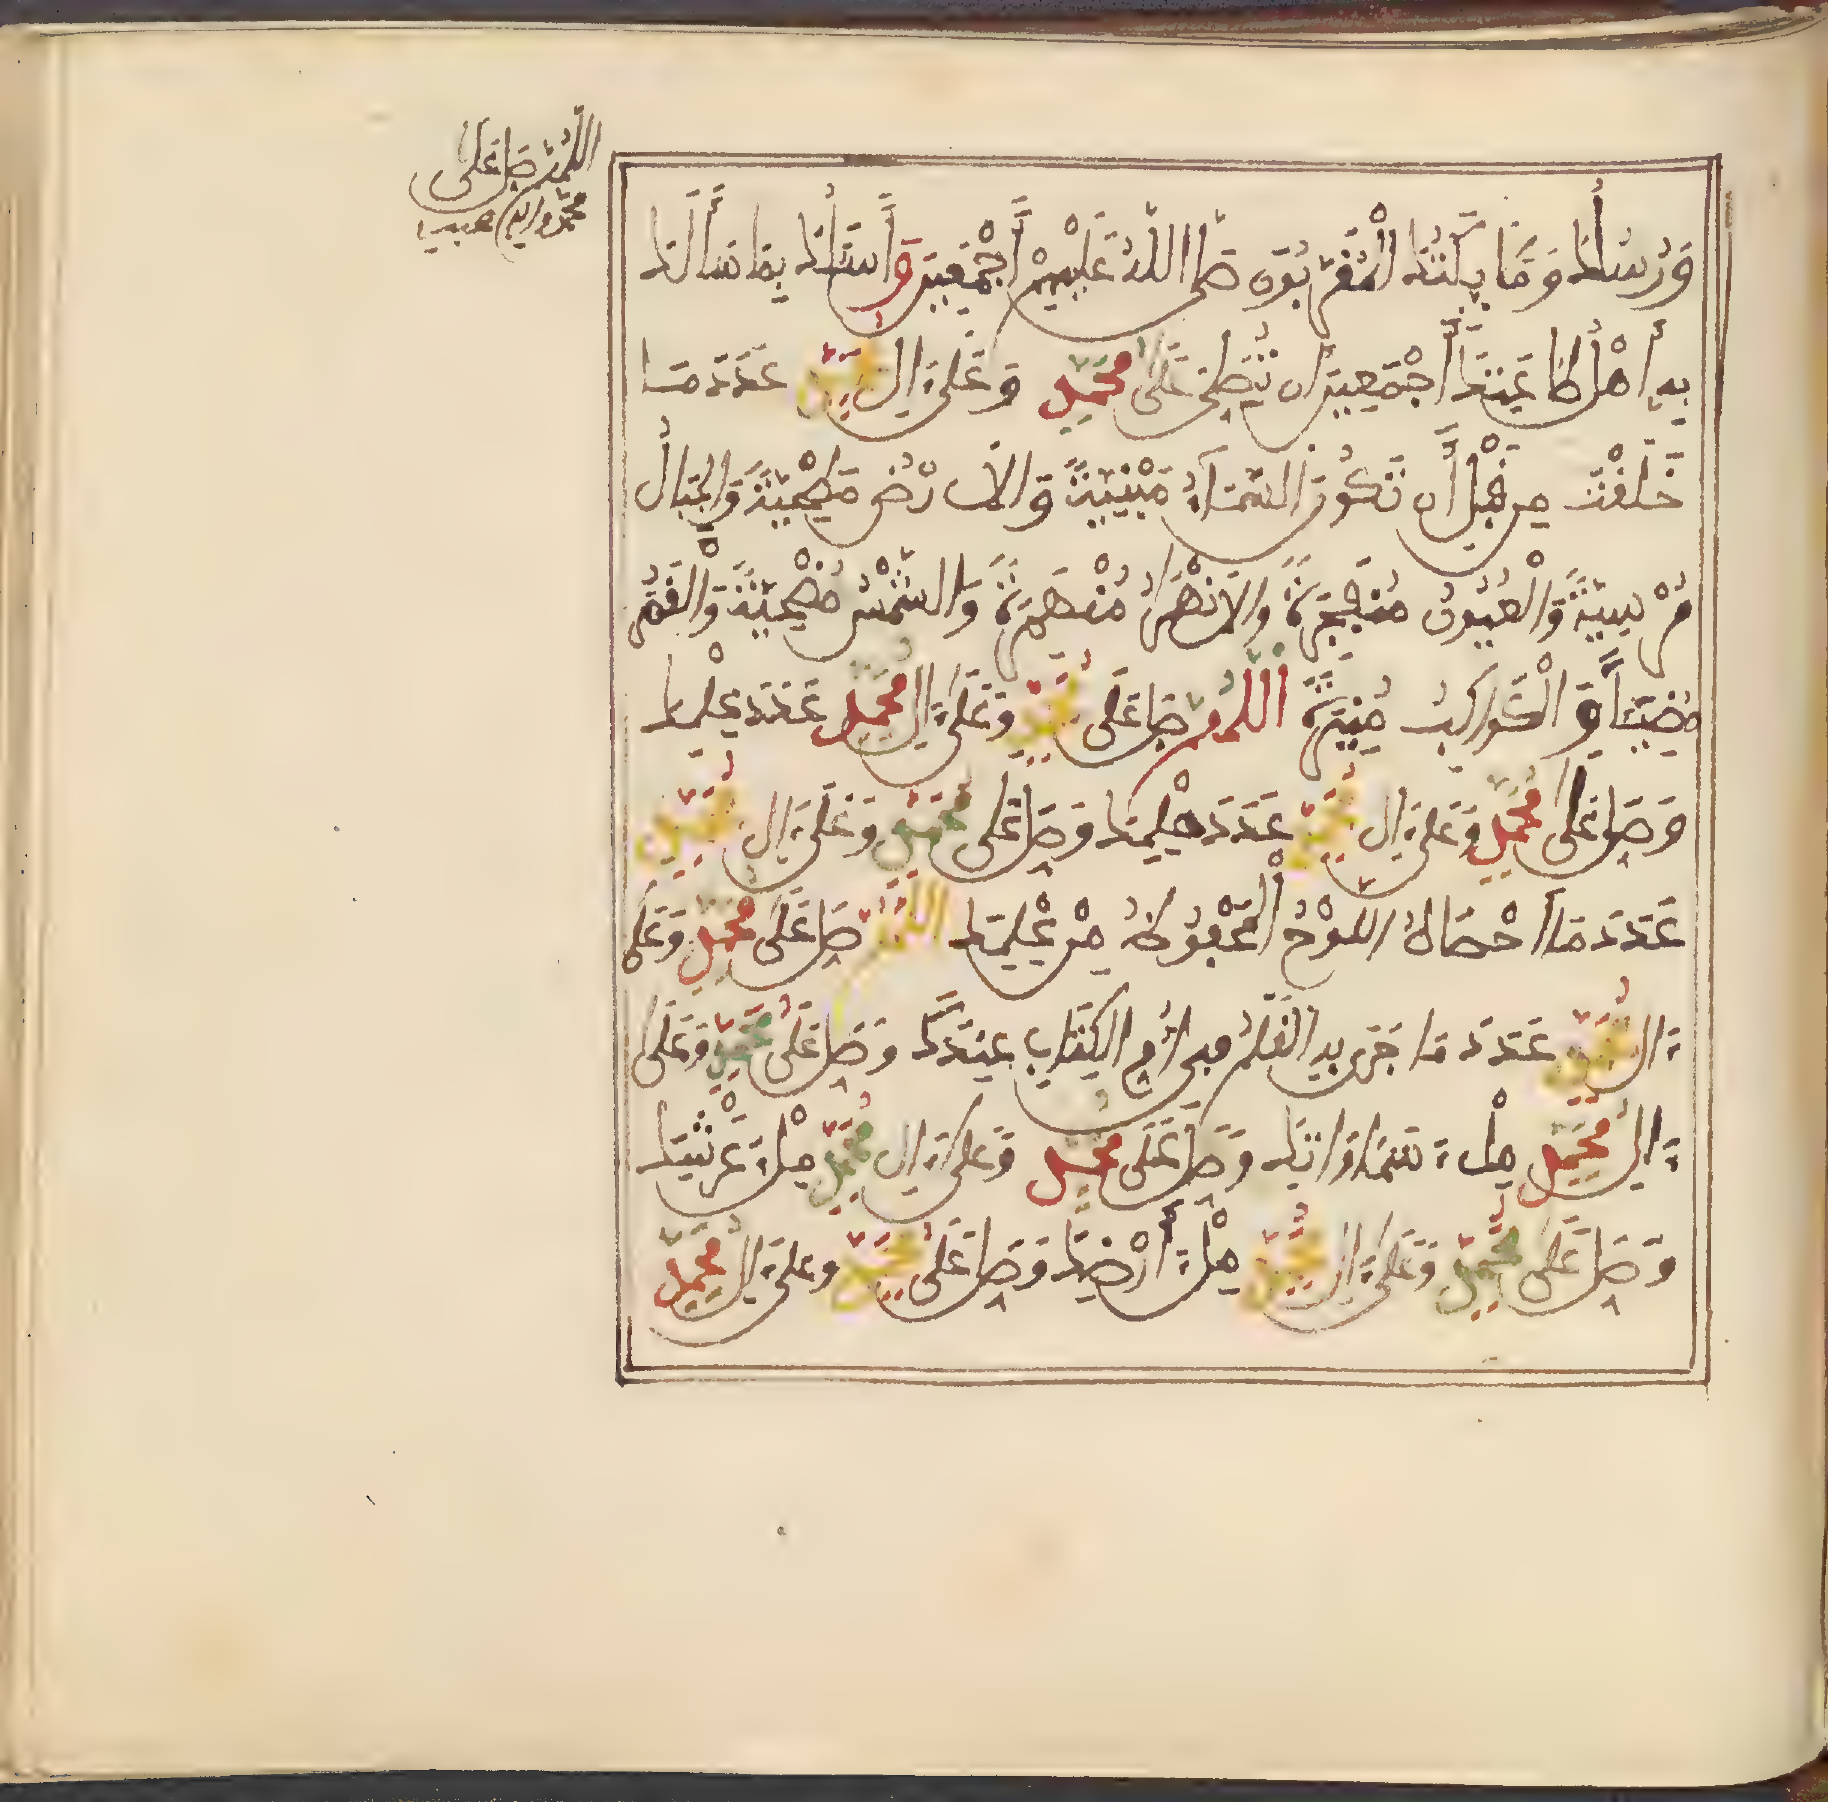 اللهم صل على
محمد واله وصحبه
وَرُسُلُكَ وَمَلَائِكَتُكَ الْمُقَرَّبُونَ صَلَّى اللهُ عَلَيْهِمْ أَجْمَعِينَ وَأَسْأَلُكَ بِمَا سَأَلَكَ
بِهِ أَهْلُ طَاعَتِكَ أَجْمَعِينَ أَن تُصَلِّيَ عَلَى مُحَمَّدٍ وَعَلَى ءَالِ مُحَمَّدٍ عَدَدَ مَا
خَلَقْتَ مِن قَبْلِ أَن تَكُونَ السَّمَاءُ مَبْنِيَّةً وَالْأَرْضُ مَطْحِيَّةً وَالْجِبَالُ
مُرْسِيَةً وَالْعُيُونُ مُنفَجِرَةً وَالْأَنْهَارُ مُنْهَمِرَةً وَالشَّمْسُ مُضْحِيَةً وَالْقَمَرُ
مُضِيئًا وَالْكَوَاكِبُ مُنِيرَةً اللَّهُمَّ صَلِّ عَلَى مُحَمَّدٍ وَعَلَى ءَالِ مُحَمَّدٍ عَدَدَ عِلْمِكَ
وَصَلِّ عَلَى مُحَمَّدٍ وَعَلَى ءَالِ مُحَمَّدٍ عَدَدَ حِلْمِكَ وَصَلِّ عَلَى مُحَمَّدٍ وَعَلَى ءَالِ مُحَمَّدٍ
عَدَدَ مَا أَحْصَاهُ اللَّوْحُ الْمَحْفُوظُ مِنْ عِلْمِكَ اللَّهُمَّ صَلِّ عَلَى مُحَمَّدٍ وَعَلَى
ءَالِ مُحَمَّدٍ عَدَدَ مَا جَرَى بِهِ الْقَلَمُ فِي أُمِّ الْكِتَابِ عِندَكَ وَصَلِّ عَلَى مُحَمَّدٍ وَعَلَى
ءَالِ مُحَمَّدٍ مِلْءَ سَمَاوَاتِكَ وَصَلِّ عَلَى مُحَمَّدٍ وَعَلَى ءَالِ مُحَمَّدٍ مِلْءَ عَرْشِكَ
وَصَلِّ عَلَى مُحَمَّدٍ وَعَلَى ءَالِ مُحَمَّدٍ مِلْءَ أَرْضِكَ وَصَلِّ عَلَى مُحَمَّدٍ وَعَلَى ءَالِ مُحَمَّدٍ